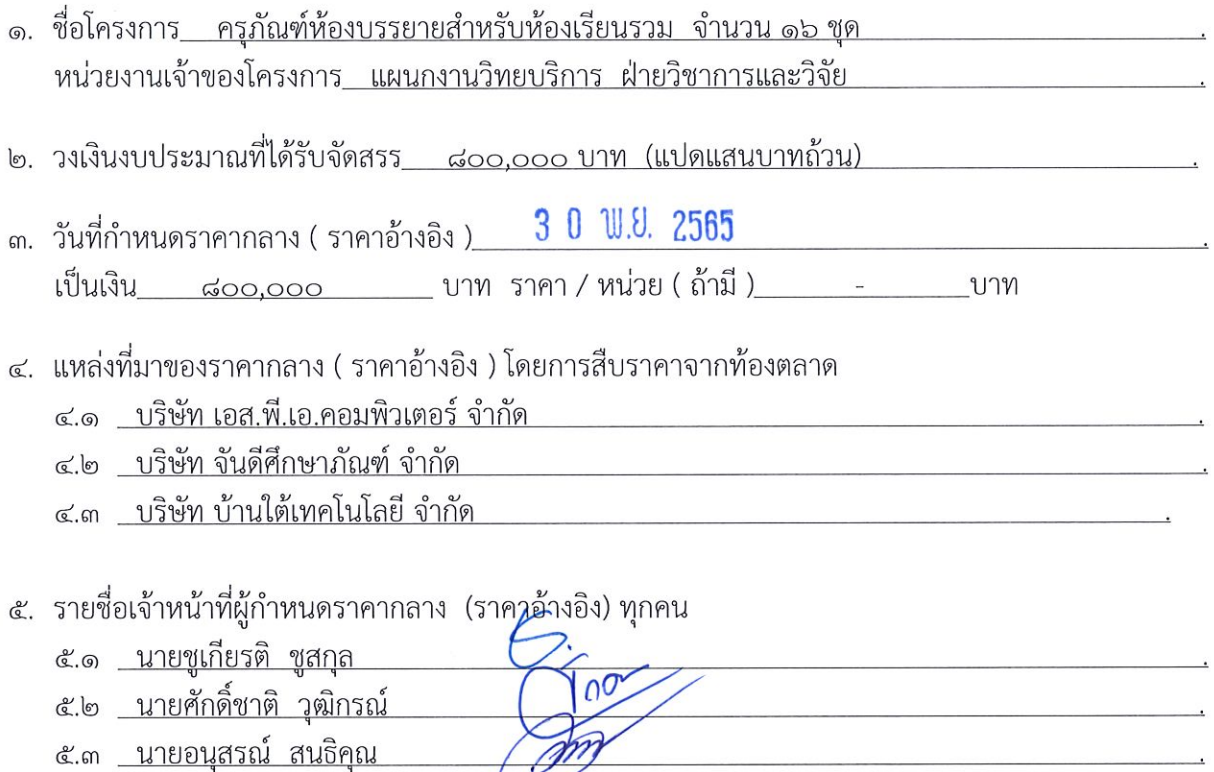 ๑. ชื่อโครงการ ครุภัณฑ์ห้องบรรยายสำหรับห้องเรียนรวม จำนวน ๑๖ ชุด .
หน่วยงานเจ้าของโครงการ แผนกงานวิทยบริการ ฝ่ายวิชาการและวิจัย .
๒. วงเงินงบประมาณที่ได้รับจัดสรร ๘๐๐,๐๐๐ บาท (แปดแสนบาทถ้วน) .
๓. วันที่กำหนดราคากลาง ( ราคาอ้างอิง ) 30 พ.ย. 2565 .
เป็นเงิน ๘๐๐,๐๐๐ บาท ราคา / หน่วย ( ถ้ามี ) - บาท
๔. แหล่งที่มาของราคากลาง ( ราคาอ้างอิง ) โดยการสืบราคาจากท้องตลาด
๔.๑ บริษัท เอส.พี.เอ.คอมพิวเตอร์ จำกัด .
๔.๒ บริษัท จันดีศึกษาภัณฑ์ จำกัด .
๔.๓ บริษัท บ้านใต้เทคโนโลยี จำกัด .
๕. รายชื่อเจ้าหน้าที่ผู้กำหนดราคากลาง (ราคาอ้างอิง) ทุกคน
๕.๑ นายชูเกียรติ ชูสกุล .
๕.๒ นายศักดิ์ชาติ วุฒิกรณ์ .
๕.๓ นายอนุสรณ์ สนธิคุณ .